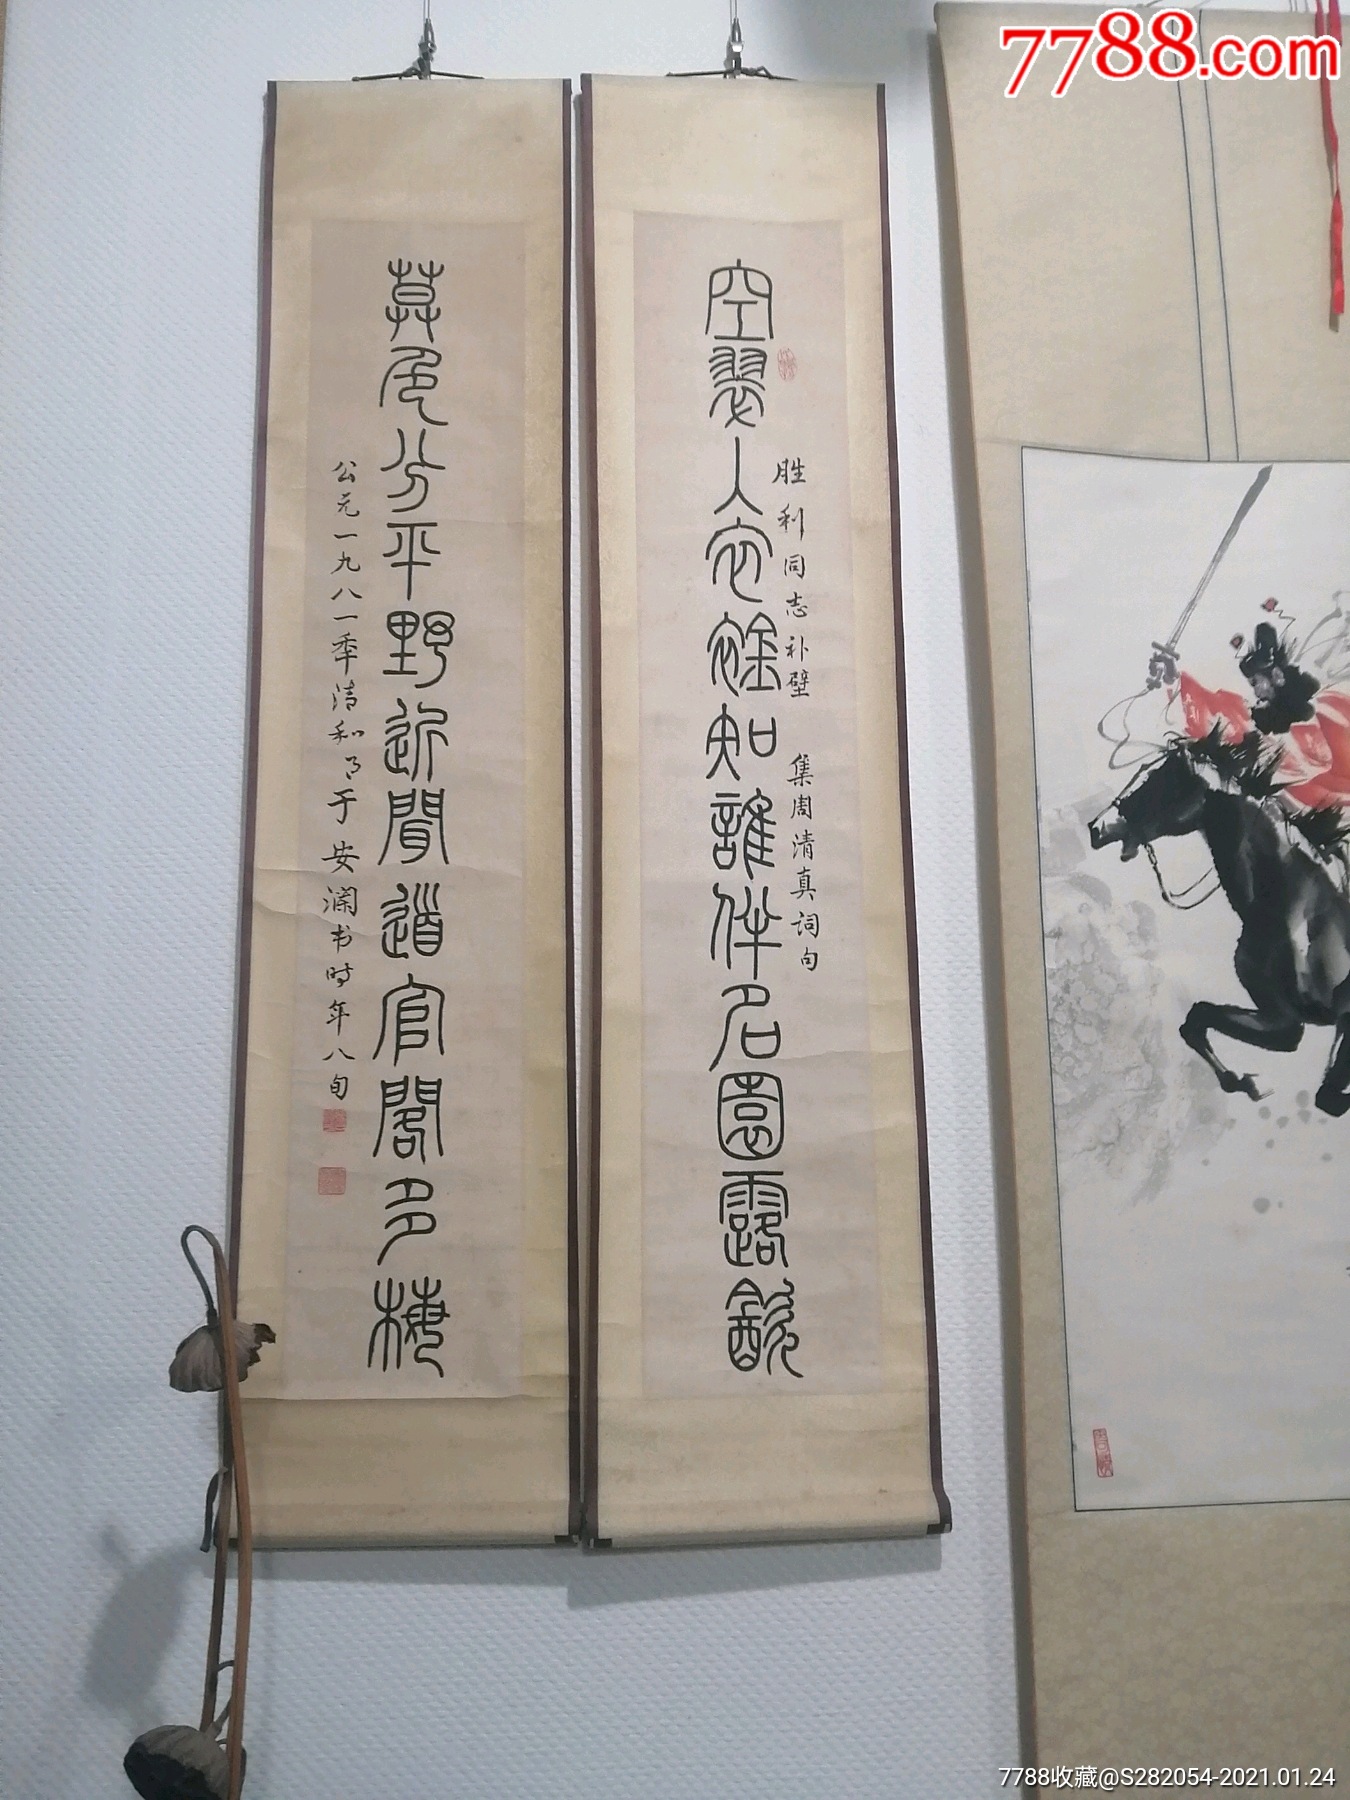 空翠入衣知誰伴名園露飲
胜利同志补壁 集周清真词句
莫色分平野近聞道官閣多梅
公元一九八一秊清和月于安澜书时年八旬
7788.com
7788收藏@S282054-2021.01.24